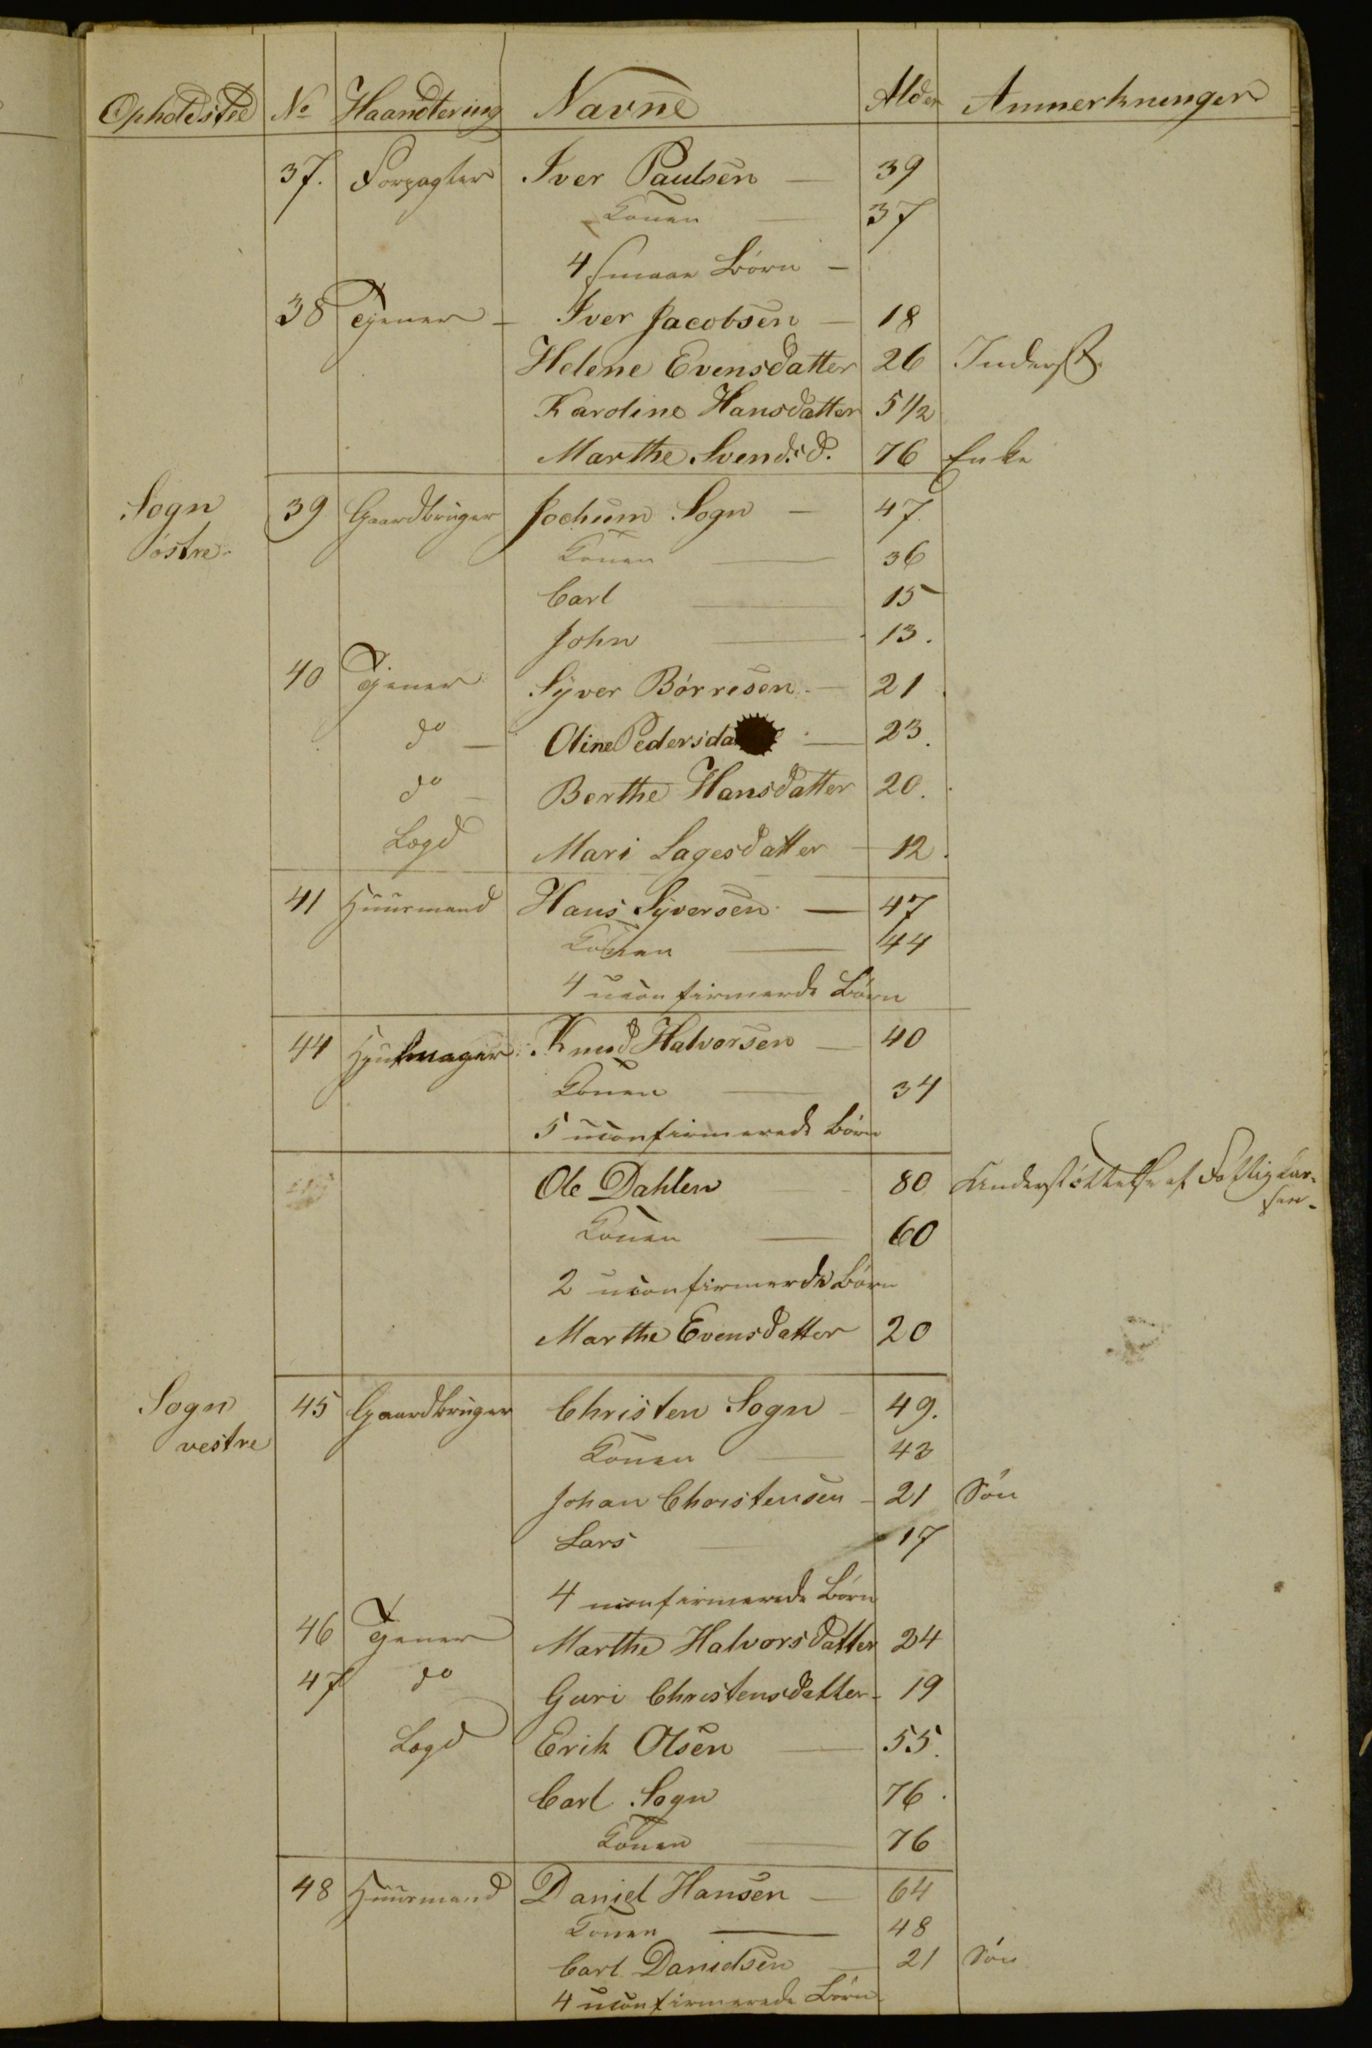 Opholdsted No Haandtering Navne Alder Anmerkninger
37. Forpagter Iver Paulsen — 39
Konen — 37
4 smaae Børn —
38 Tjener — Iver Jacobsen — 18
Helene Evensdatter 26 Inderst.
Karoline Hansdatter 5 1/2
Marthe Svends.d. 76 Enke
Sogn 39 Gaardbruger Jochum Sogn — 47
østre. Konen — 36
Carl — 15
John — 13.
40 Tjener Syver Børresen — 21
do — Oline — 23.
do — Berthe Hansdatter 20.
Lægd Mari Lagesdatter — 12.
41 Huusmand Hans Syversen — 47
Konen — 44
4 uconfirmerde Børn
44 Hjulmager Knud Halvorsen — 40
Konen — 34
5 uconfirmerede Børn
Ole Dahlen 80 Understøttelse af Fattigkas-
sen.
Konen — 60
2 uconfirmerde Børn
Marthe Evensdatter 20
Sogn 45 Gaardbruger Christen Sogn — 49.
vestre Konen — 43
Johan Christensen — 21 Søn
Lars — 17
4 uconfirmerede Børn
46 Tjener Marthe Halvorsdatter 24
47 do Guri Christensdatter — 19
Lægd Erik Olsen — 55.
Carl Sogn 76.
Konen — 76
48 Huusmand Daniel Hansen — 64
Konen — 48
Carl Danielsen — 21 Søn
4 uconfirmerede Børn